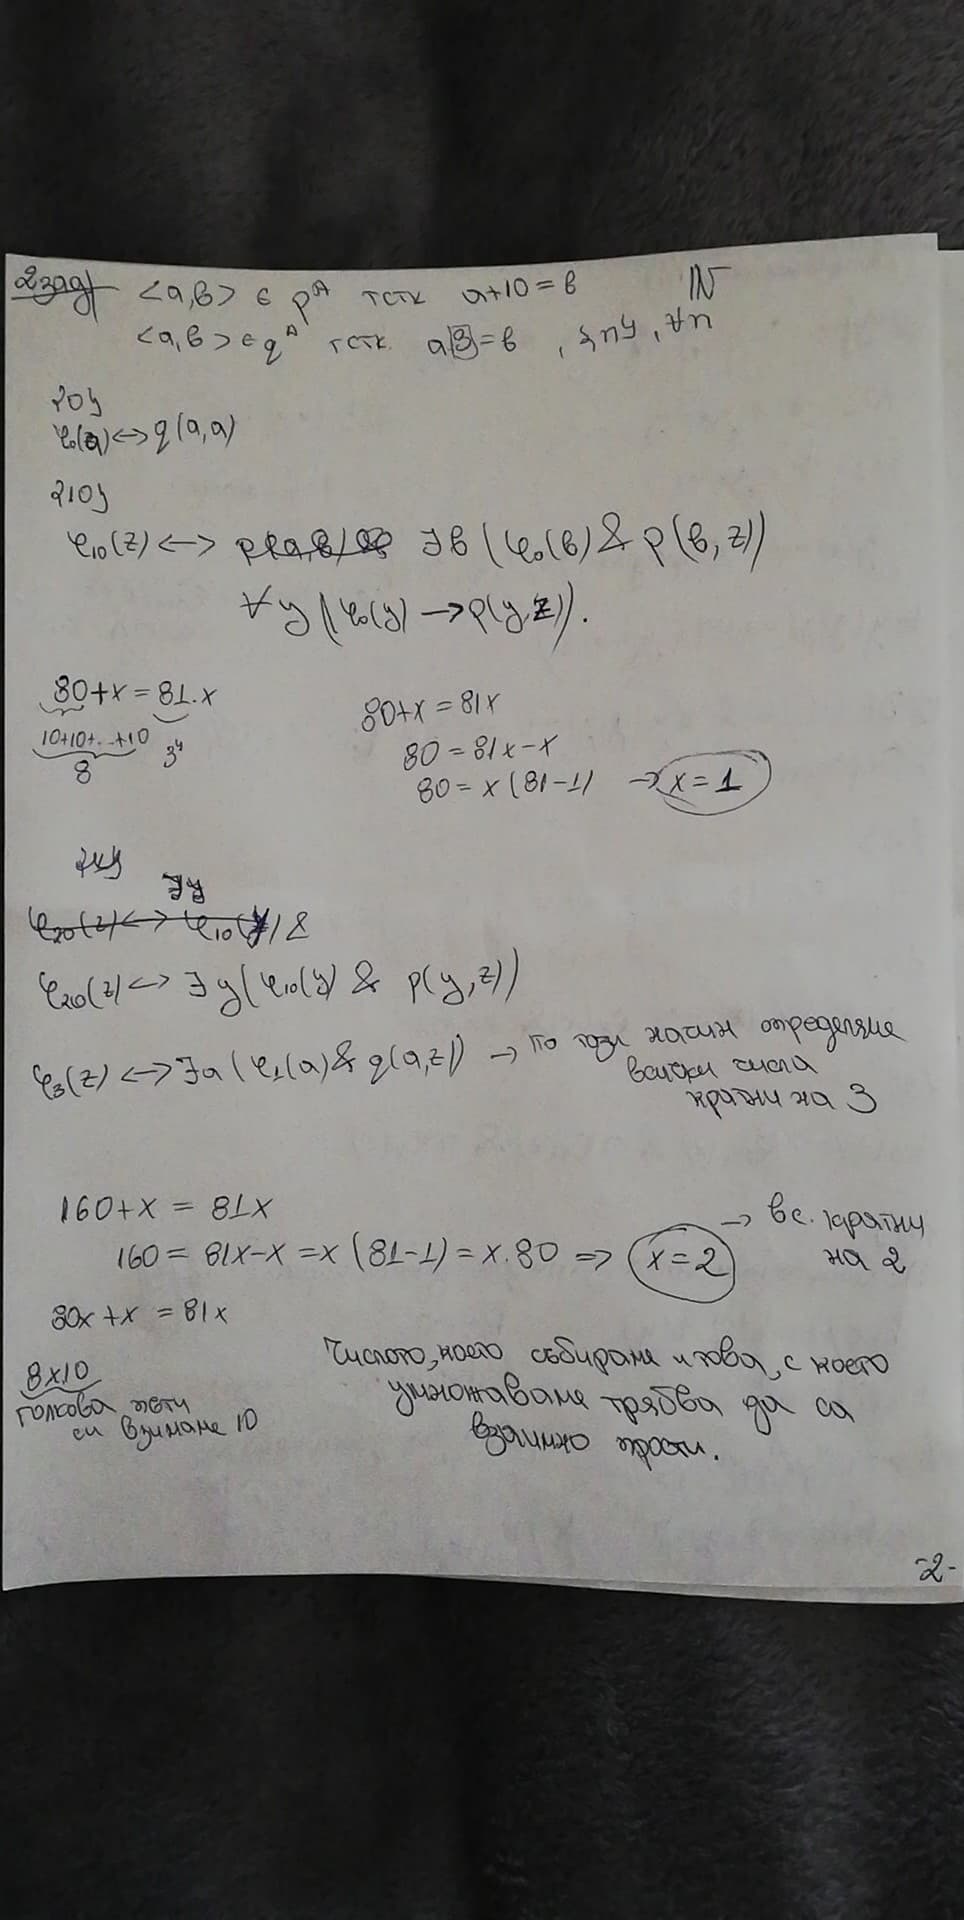 2 зад| <a,b> ∈ p^A тстк a+10=b ℕ
<a,b> ∈ q^A тстк a·3=b, {n}, ∀n
{0}
φ₀(a) <-> q(a,a)
{10}
φ₁₀(z) <-> ∃b (φ₀(b) & p(b,z))
∀y (φ₀(y) -> p(y,z)).
80+x = 81.x
10+10+...+10
8
3⁴
80+x = 81x
80 = 81x-x
80 = x(81-1) -> x=1
∃y
φ₂₀(z) <-> φ₁₀(y) &
φ₂₀(z) <-> ∃y (φ₁₀(y) & p(y,z))
φ₃(z) <-> ∃a (φ₁(a) & q(a,z)) -> по този начин определяме
всички числа
кратни на 3
160+x = 81x
160 = 81x-x = x(81-1) = x.80 => x=2 -> вс. кратни
на 2
80x+x = 81x
8x10
толкова пъти
си взимаме 10
Числото, което събираме и това, с което
умножаваме трябва да са
взаимно прости.
-2-